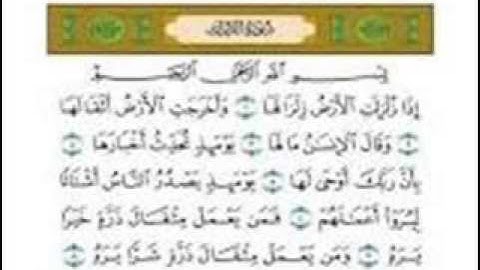 سورة الزلزلة
بسم الله الرحمن الرحيم
إِذَا زُلْزِلَتِ الْأَرْضُ زِلْزَالَهَا ١ وَأَخْرَجَتِ الْأَرْضُ أَثْقَالَهَا
٢ وَقَالَ الْإِنسَٰنُ مَا لَهَا ٣ يَوْمَئِذٍ تُحَدِّثُ أَخْبَارَهَا ٤
بِأَنَّ رَبَّكَ أَوْحَىٰ لَهَا ٥ يَوْمَئِذٍ يَصْدُرُ النَّاسُ أَشْتَاتًا
لِّيُرَوْا أَعْمَٰلَهُمْ ٦ فَمَن يَعْمَلْ مِثْقَالَ ذَرَّةٍ خَيْرًا
يَرَهُ ٧ وَمَن يَعْمَلْ مِثْقَالَ ذَرَّةٍ شَرًّا يَرَهُ ٨